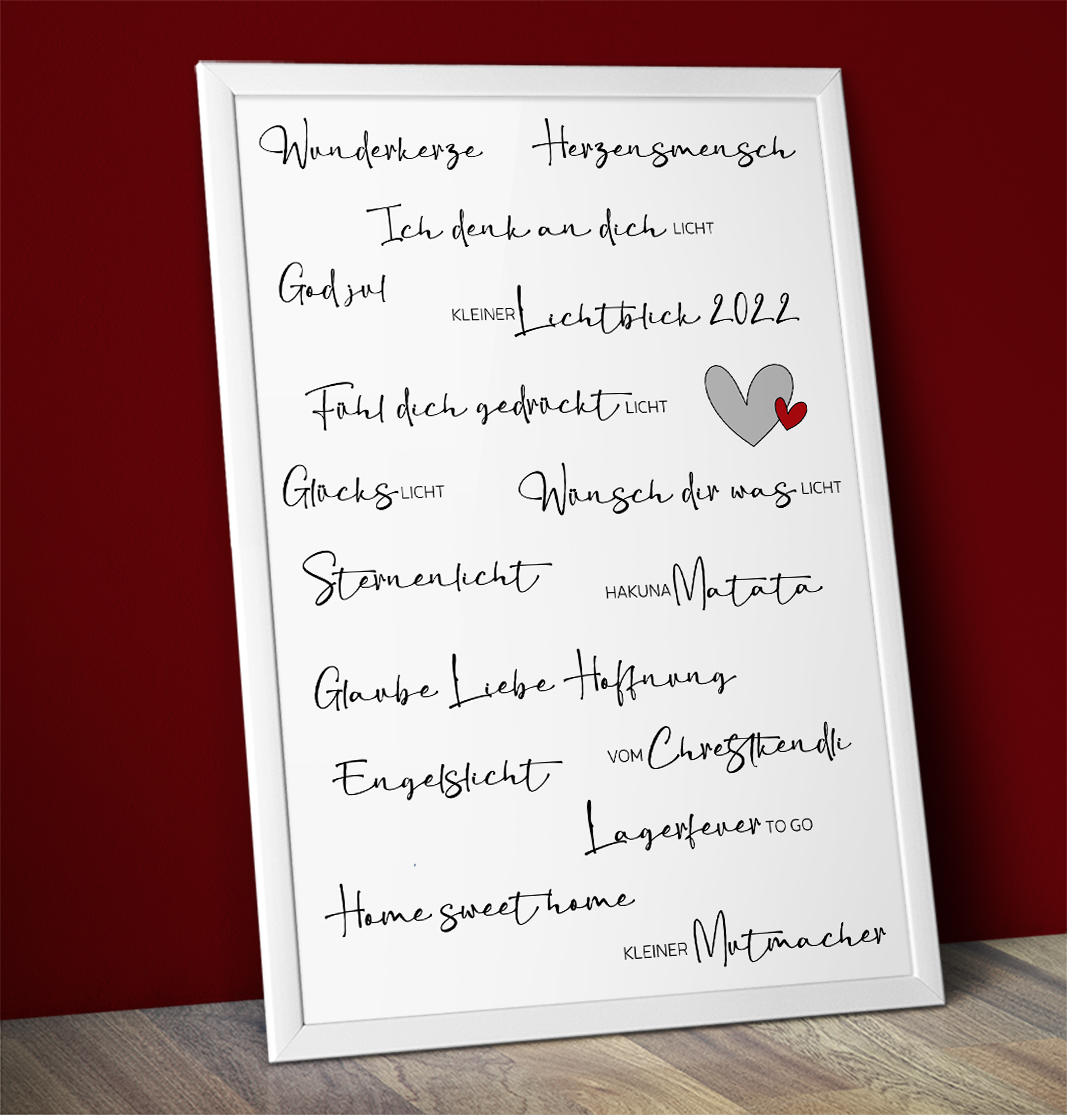 Wunderkerze Herzensmensch
Ich denk an dich LICHT
God jul
KLEINER Lichtblick 2022
Fühl dich gedrückt LICHT
Glücks LICHT Wünsch dir was LICHT
Sternenlicht HAKUNA Matata
Glaube Liebe Hoffnung
VOM Chrestkendli
Engelslicht
Lagerfeuer TO GO
Home sweet home
KLEINER Mutmacher